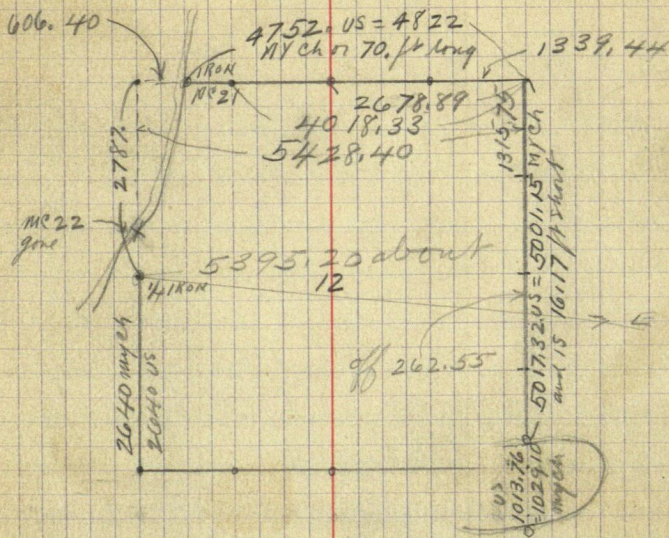 606.40
4752. US = 4822
MY Ch or 70. ft long
1339.44
IRON
MC 21
2678.89
4018.33
5428.40
1315.75
2787.
MC 22
gone
5395.20 about
12
1/4 IRON
off 262.55
2640 my ch
2640 US
5017.32 US = 5001.15 MY Ch
and is 16.17 ft short
US
1013.76
= 1029.10
my ch